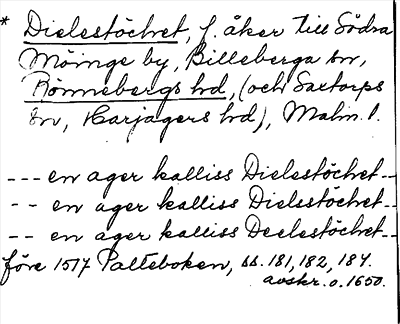 * Dielestöchet, f. åker till Södra
Möinge by, Billeberga sn,
Rönnebergs hd, (och Saxtorps
sn, Harjagers hd), Malm. l.
--- en ager kalliss Dielestöchet--
-- en ager kalliss Dielsstöchet--
-- en ager kalliss Deelestöchet--
före 1517 Palteboken, ss. 181, 182, 184.
avskr. o. 1650.